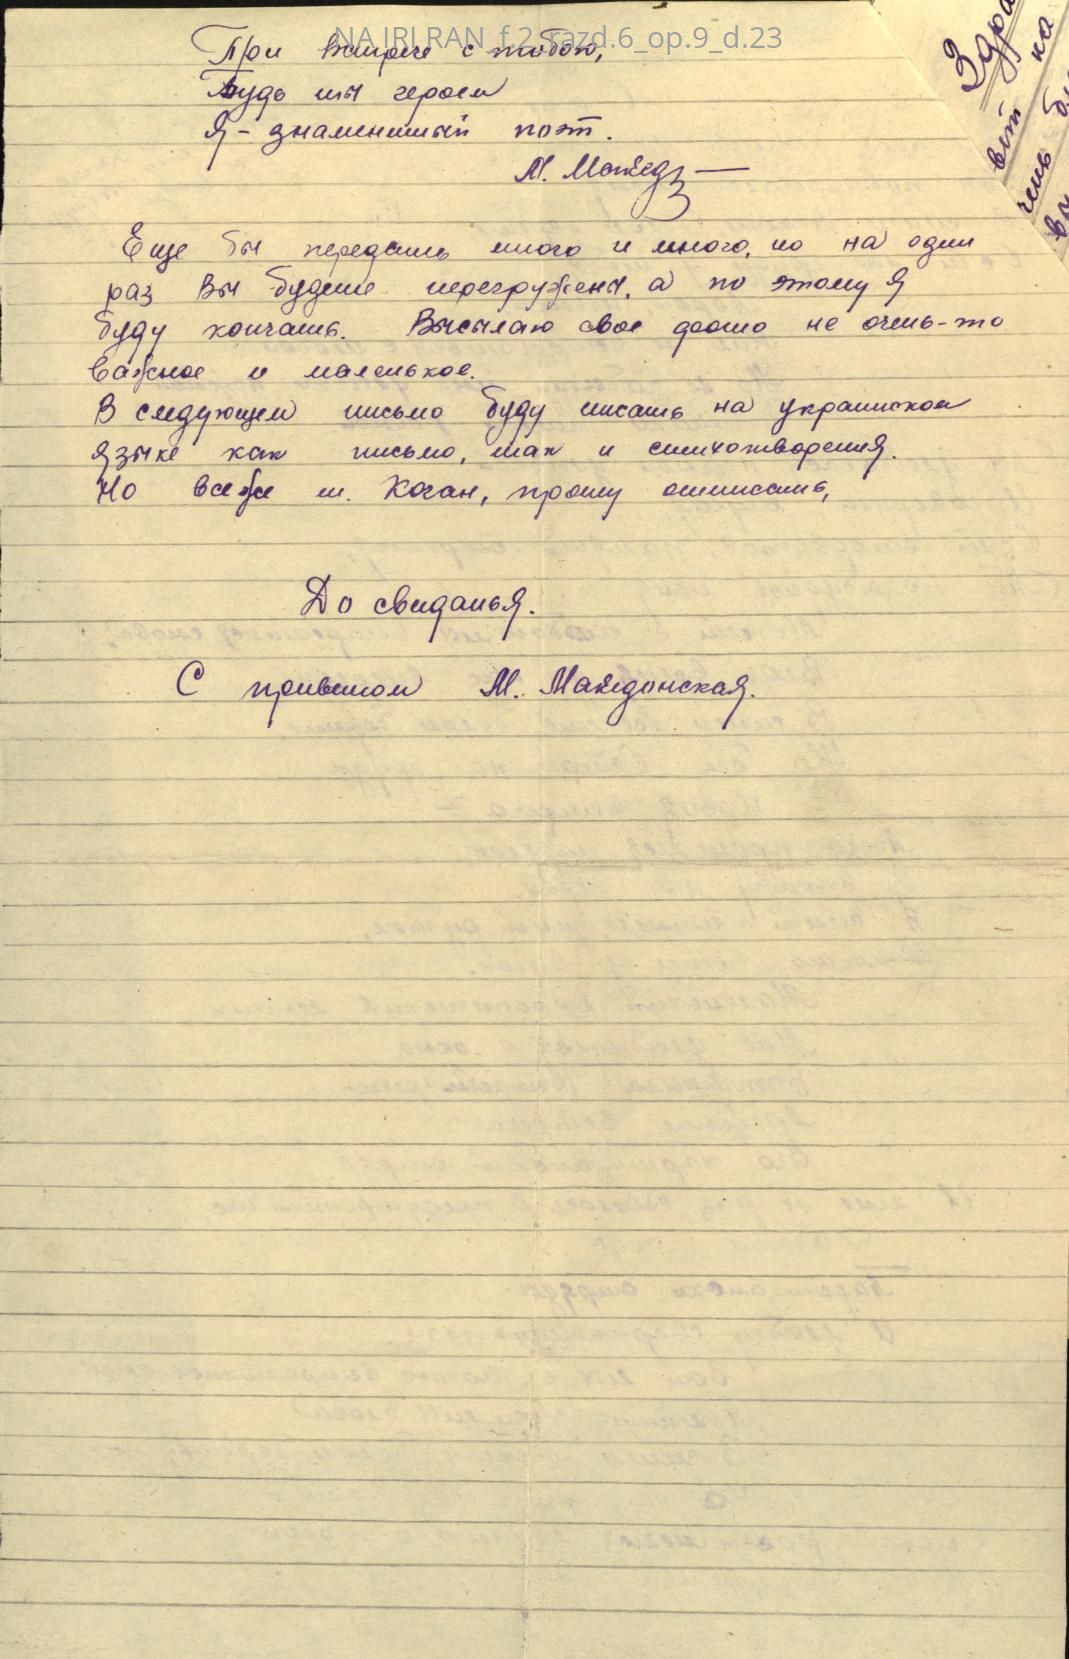 NA IRI RAN_f.2_razd.6_op.9_d.23
При встрече с тобою,
Будь ты героем
Я - знаменитый поэт.
М. Макед
Еще бы передать много и много, но на один
раз Вы будете перегружены, а по этому я
буду кончать. Высылаю свое фото не очень-то
важное и маленькое.
В следующем письмо буду писать на украинском
языке как письмо, так и стихотворения.
Но все же т. Коган, прошу отписать,
До свиданья.
С приветом М. Македонская.
Здра
на